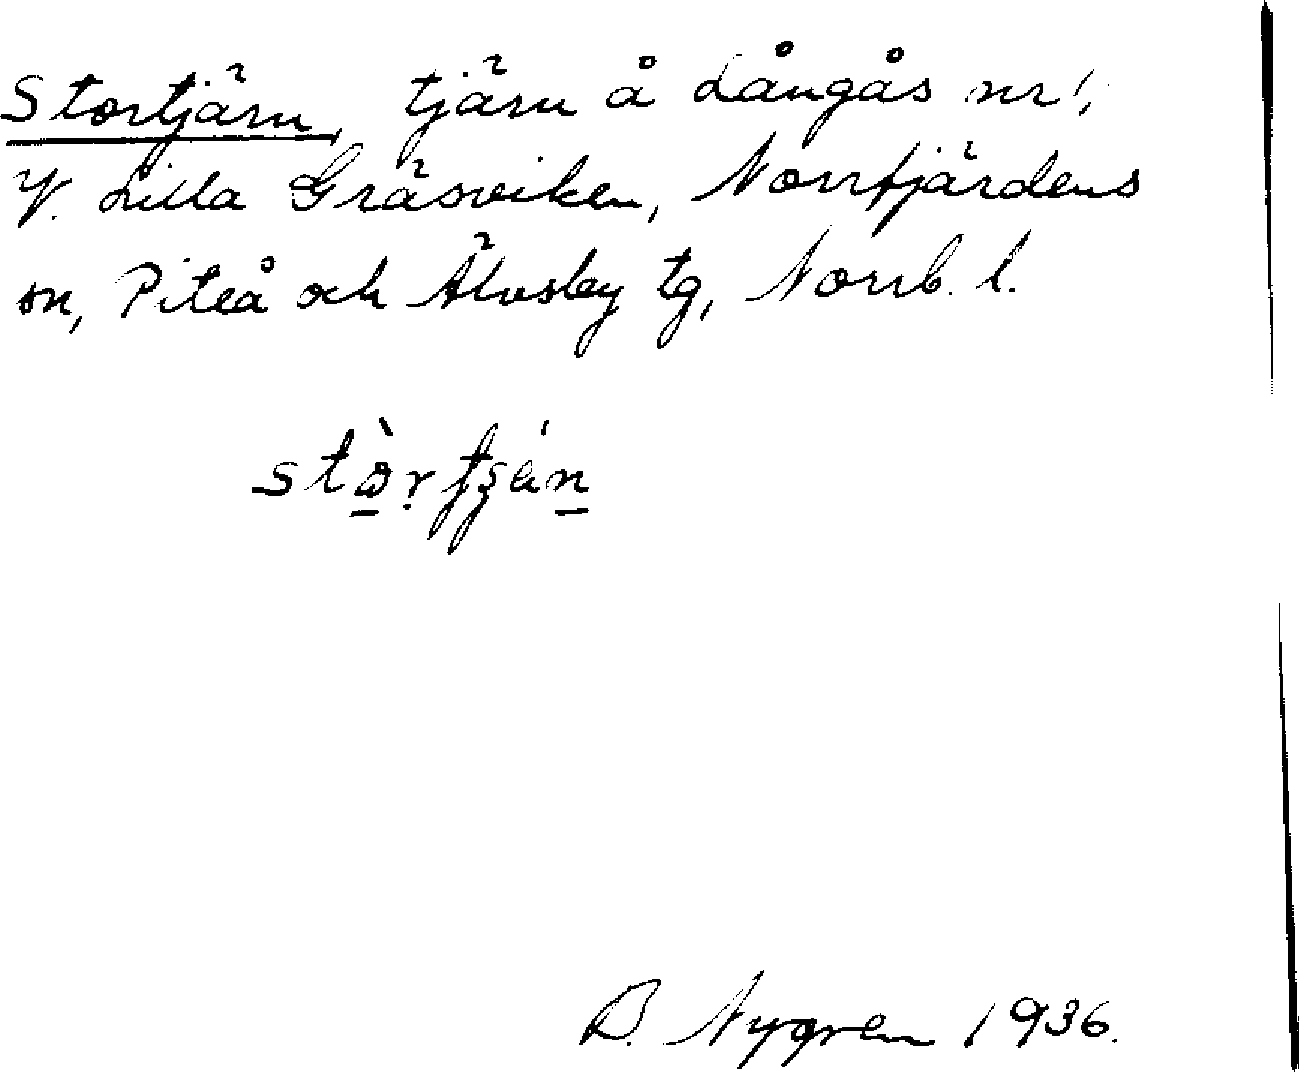 Stortjärn, tjärn å Långås nr 1,
V. Lilla Gräsviken, Norrfjärdens
sn, Piteå och Älvsby tg, Norrb. l.
B. Nygren 1936.